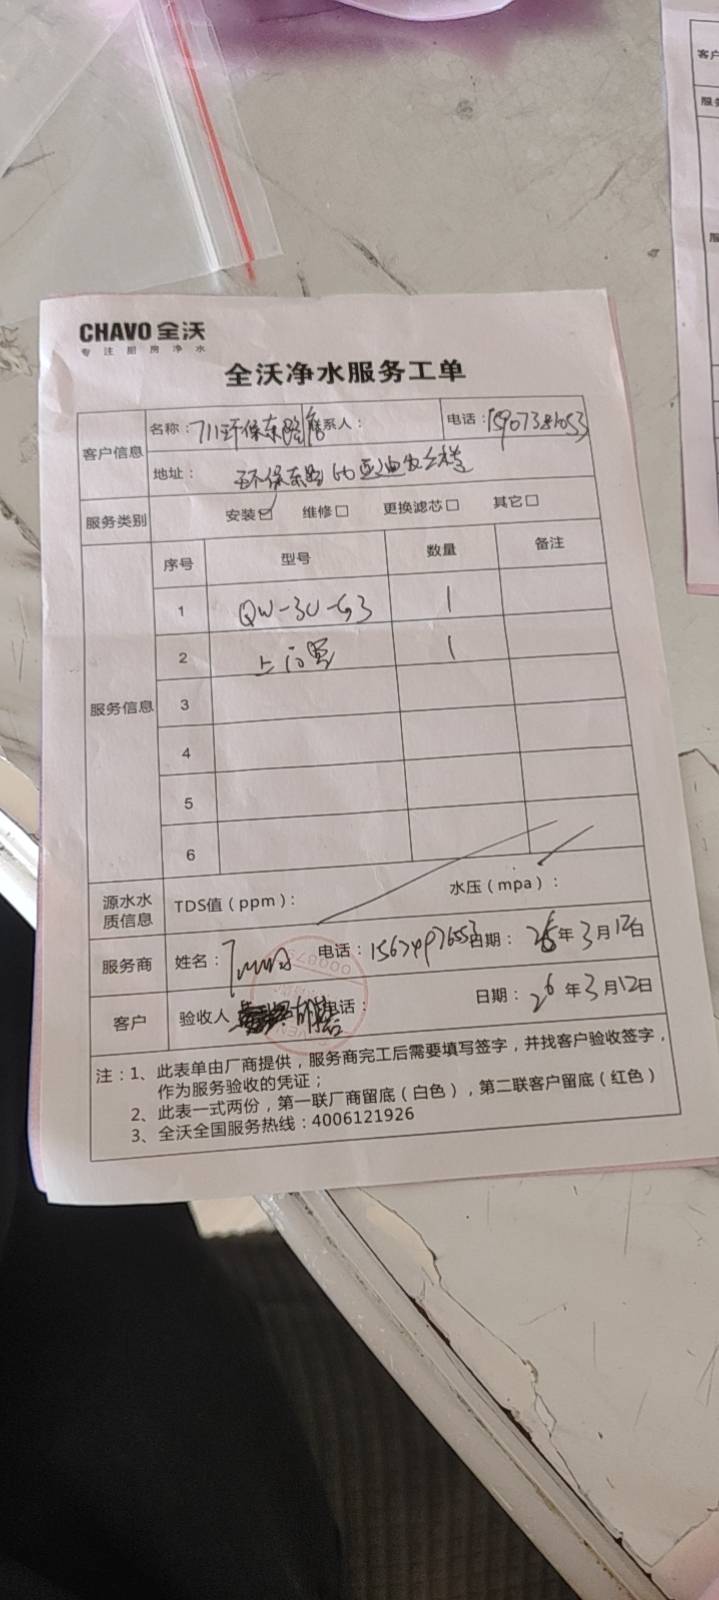 CHAVO 全沃
专注厨房净水
全沃净水服务工单
客户信息
名称：711环保东路店 联系人：
电话：15907381053
地址：环保东路
服务类别
安装☑ 维修□ 更换滤芯□ 其它□
服务信息
序号 型号 数量 备注
1 QW-3U-G3 1
2 1
3
4
5
6
源水水质信息
TDS值（ppm）：
水压（mpa）：
服务商
姓名： 电话：15674976553 日期：26年3月12日
客户
验收人 电话： 日期：26年3月12日
注：1、此表单由厂商提供，服务商完工后需要填写签字，并找客户验收签字，
作为服务验收的凭证；
2、此表一式两份，第一联厂商留底（白色），第二联客户留底（红色）
3、全沃全国服务热线：4006121926
客户